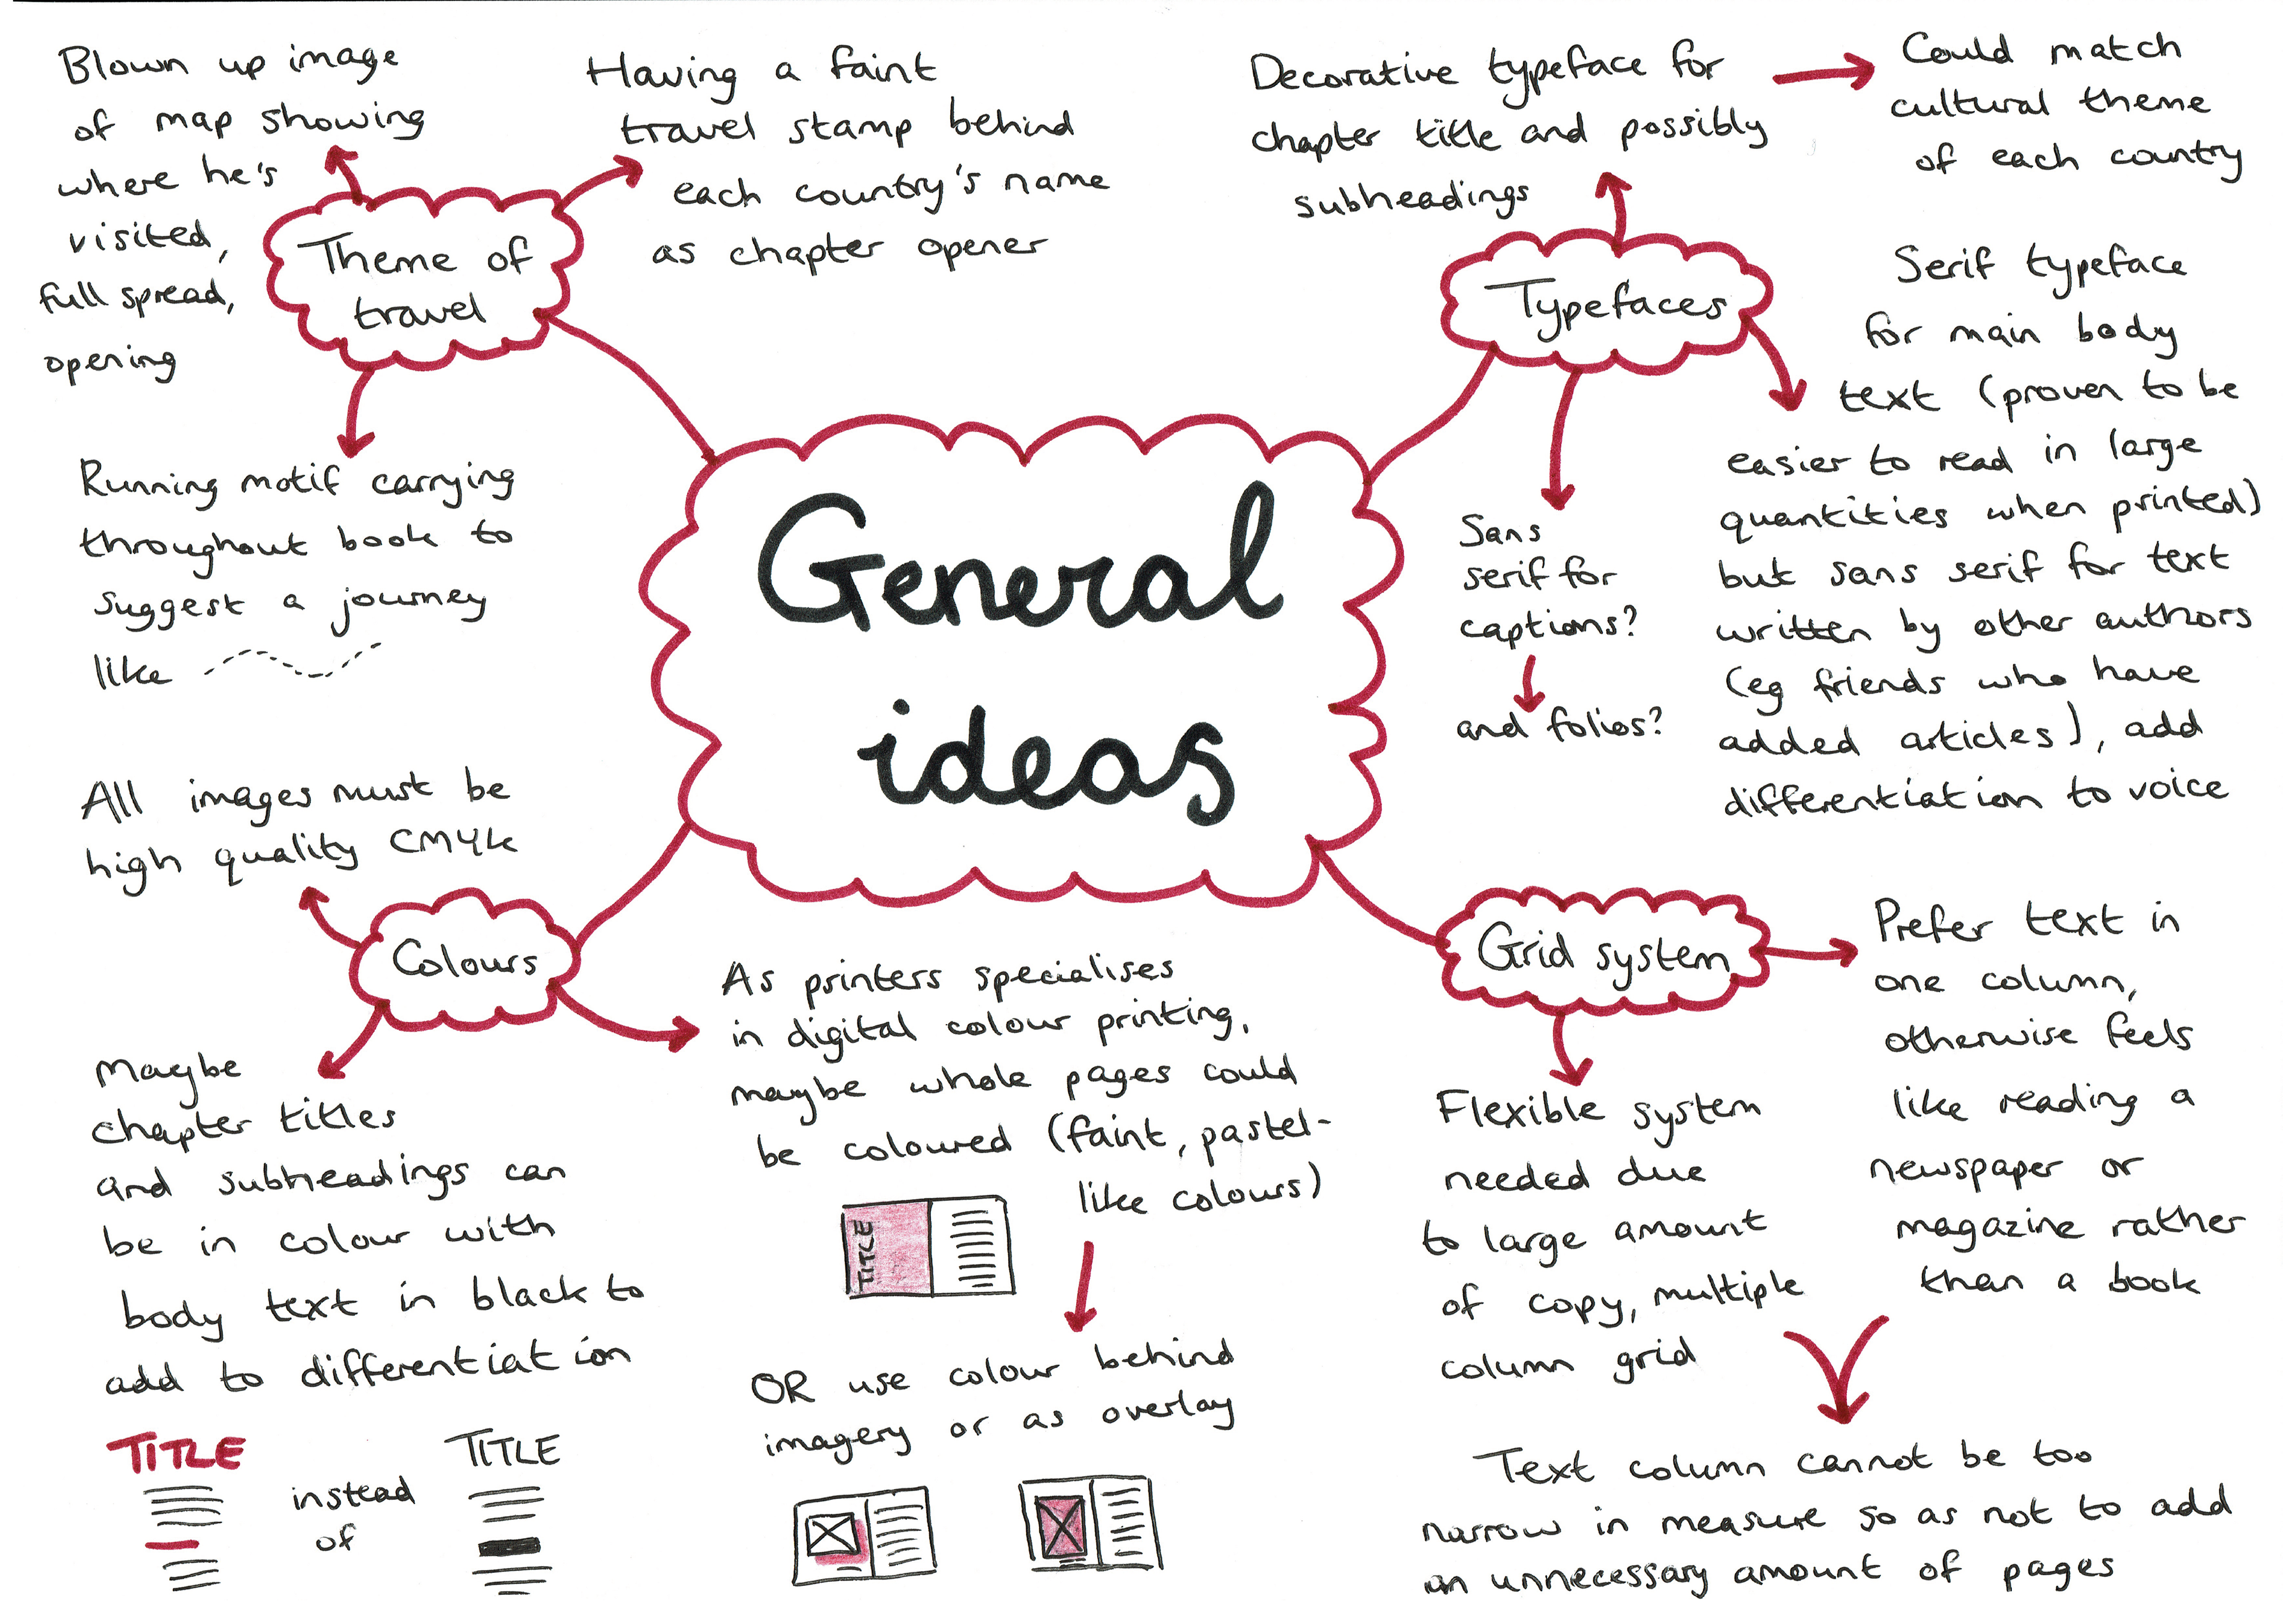 Blown up image
of map showing
where he's
visited,
full spread,
opening
Having a faint
travel stamp behind
each country's name
as chapter opener
Theme of
travel
Running motif carrying
throughout book to
suggest a journey
like
Decorative typeface for
chapter title and possibly
subheadings
Could match
cultural theme
of each country
Typefaces
Serif typeface
for main body
text (proven to be
easier to read in large
quantities when printed)
but sans serif for text
written by other authors
(eg friends who have
added articles), add
differentiation to voice
Sans
serif for
captions?
and folios?
General
ideas
All images must be
high quality CMYK
Colours
Maybe
chapter titles
and subheadings can
be in colour with
body text in black to
add to differentiation
TITLE
instead
of
TITLE
As printers specialises
in digital colour printing,
maybe whole pages could
be coloured (faint, pastel-
like colours)
TITLE
OR use colour behind
imagery or as overlay
Grid system
Prefer text in
one column,
otherwise feels
like reading a
newspaper or
magazine rather
than a book
Flexible system
needed due
to large amount
of copy, multiple
column grid
Text column cannot be too
narrow in measure so as not to add
an unnecessary amount of pages